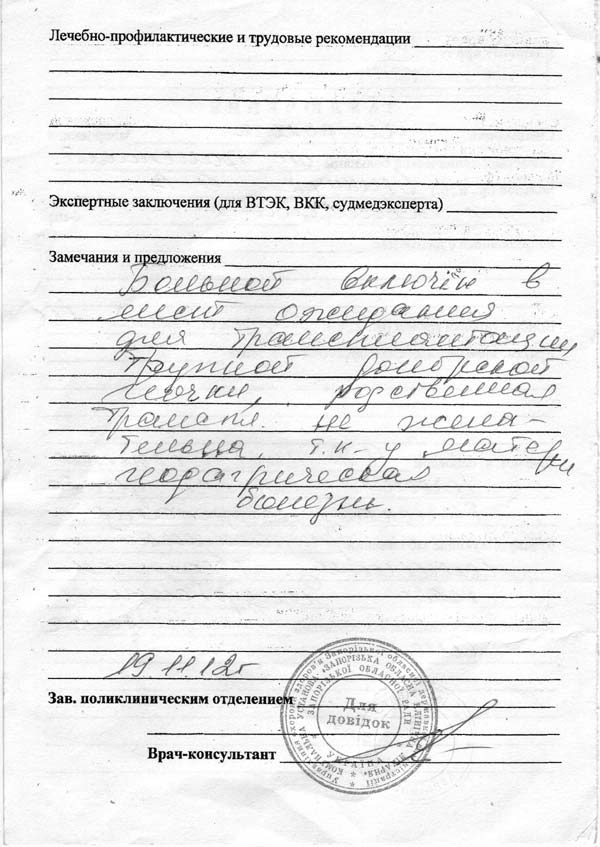 Лечебно-профилактические и трудовые рекомендации
Экспертные заключения (для ВТЭК, ВКК, судмедэксперта)
Замечания и предложения
Больной включён в
лист ожидания
для трансплантации
трупной донорской
почки, родственная
транспл. не жела-
тельна, т.к. у матери
подагрическая
болезнь.
19.11.12г
Зав. поликлиническим отделением
Врач-консультант
Управління охорони здоров'я Запорізької обласної державної адміністрації
КОМУНАЛЬНА УСТАНОВА «ЗАПОРІЗЬКА ОБЛАСНА КЛІНІЧНА ЛІКАРНЯ»
ЗАПОРІЗЬКОЇ ОБЛАСНОЇ РАДИ
* УКРАЇНА *
Для
довідок